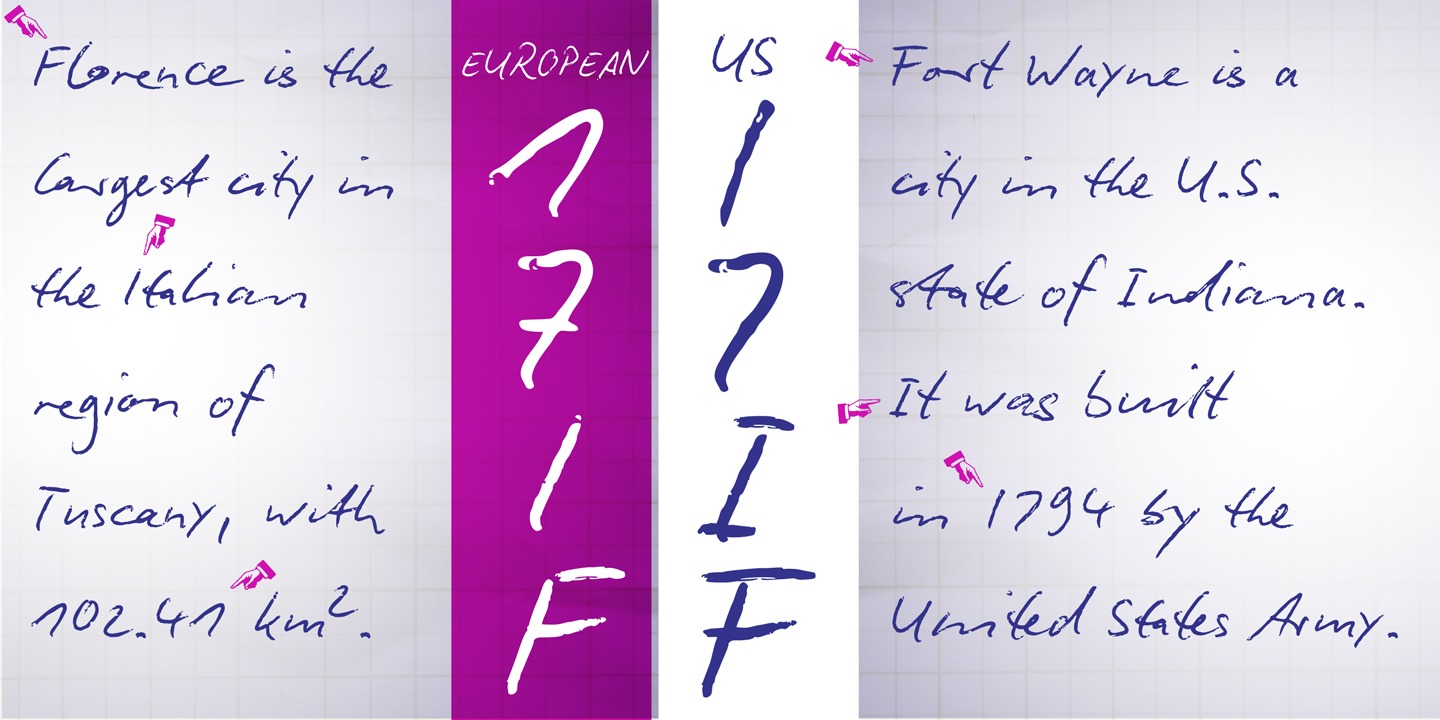 Florence is the
largest city in
the Italian
region of
Tuscany, with
102.41 km².
EUROPEAN
1
7
I
F
US
1
7
I
F
Fort Wayne is a
city in the U.S.
state of Indiana.
It was built
in 1794 by the
United States Army.